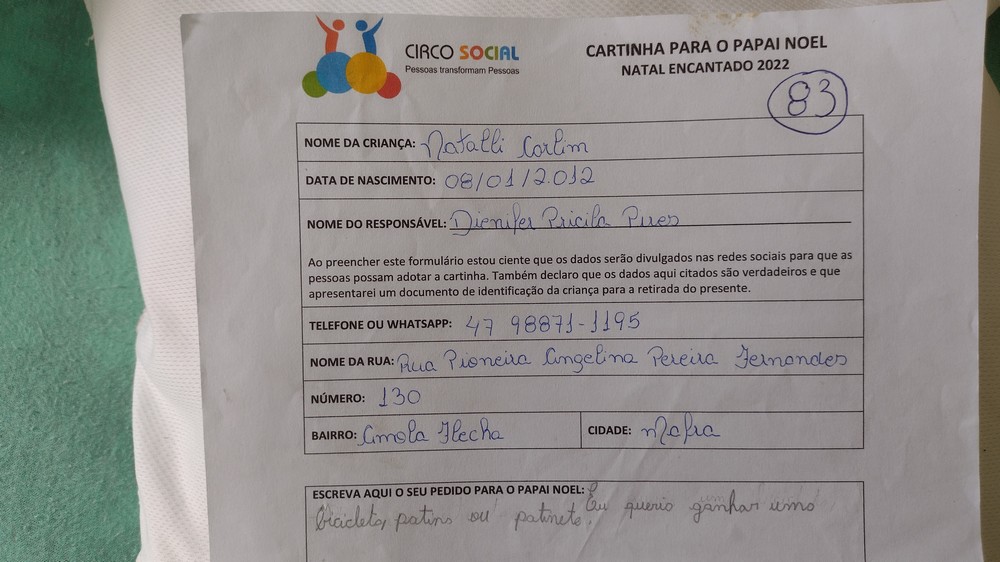 CIRCO SOCIAL
Pessoas transformam Pessoas
CARTINHA PARA O PAPAI NOEL
NATAL ENCANTADO 2022
83
NOME DA CRIANÇA: Natalli Corlim
DATA DE NASCIMENTO: 08/01/2.012
NOME DO RESPONSÁVEL: Dienifer Pricila Pires
Ao preencher este formulário estou ciente que os dados serão divulgados nas redes sociais para que as
pessoas possam adotar a cartinha. Também declaro que os dados aqui citados são verdadeiros e que
apresentarei um documento de identificação da criança para a retirada do presente.
TELEFONE OU WHATSAPP: 47 98871-1195
NOME DA RUA: Rua Pioneira Angelina Pereira Fernandes
NÚMERO: 130
BAIRRO: Amola Flecha CIDADE: Mafra
ESCREVA AQUI O SEU PEDIDO PARA O PAPAI NOEL: Eu queria ganhar uma
bicicleta, patins ou patinete.